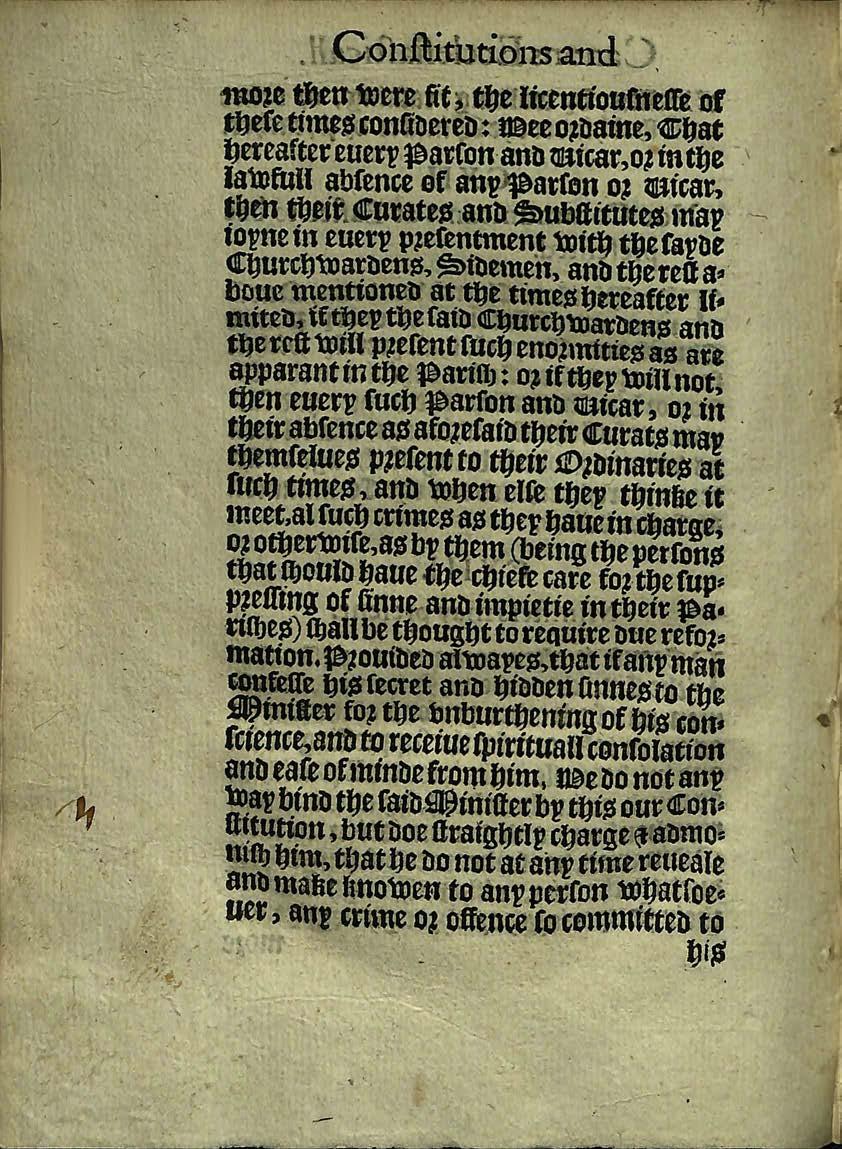 Conſtitutions and
more then were fit, the licentiouſneſſe of
theſe times conſidered: Wee ordaine, That
hereafter euery Parſon and Uicar, or in the
lawfull abſence of any Parſon or Uicar,
then their Curates and Subſtitutes may
ioyne in euery preſentment with the ſayde
Churchwardens, Sidemen, and the reſt a-
boue mentioned at the times hereafter li-
mited, if they the ſaid Churchwardens and
the reſt will preſent ſuch enormities as are
apparant in the Pariſh: or if they will not,
then euery ſuch Parſon and Uicar, or in
their abſence as aforeſaid their Curats may
themſelues preſent to their Ordinaries at
ſuch times, and when elſe they thinke it
meet, al ſuch crimes as they haue in charge,
or otherwiſe, as by them (being the perſons
that ſhould haue the chiefe care for the ſup-
preſſing of ſinne and impietie in their Pa-
riſhes) ſhall be thought to require due refor-
mation. Prouided alwayes, that if any man
confeſſe his ſecret and hidden ſinnes to the
Miniſter for the vnburthening of his con-
ſcience, and to receiue ſpirituall conſolation
and eaſe of minde from him, We do not any
way bind the ſaid Miniſter by this our Con-
ſtitution, but doe ſtraightly charge & admo-
niſh him, that he do not at any time reueale
and make knowen to any perſon whatſoe-
uer, any crime or offence ſo committed to
his